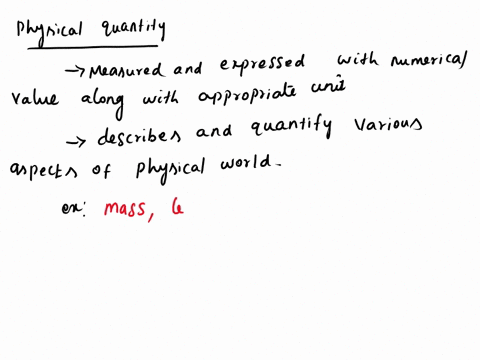 Physical quantity
→ Measured and expressed with numerical
value along with appropriate unit
→ describes and quantify various
aspects of physical world.
ex: mass,